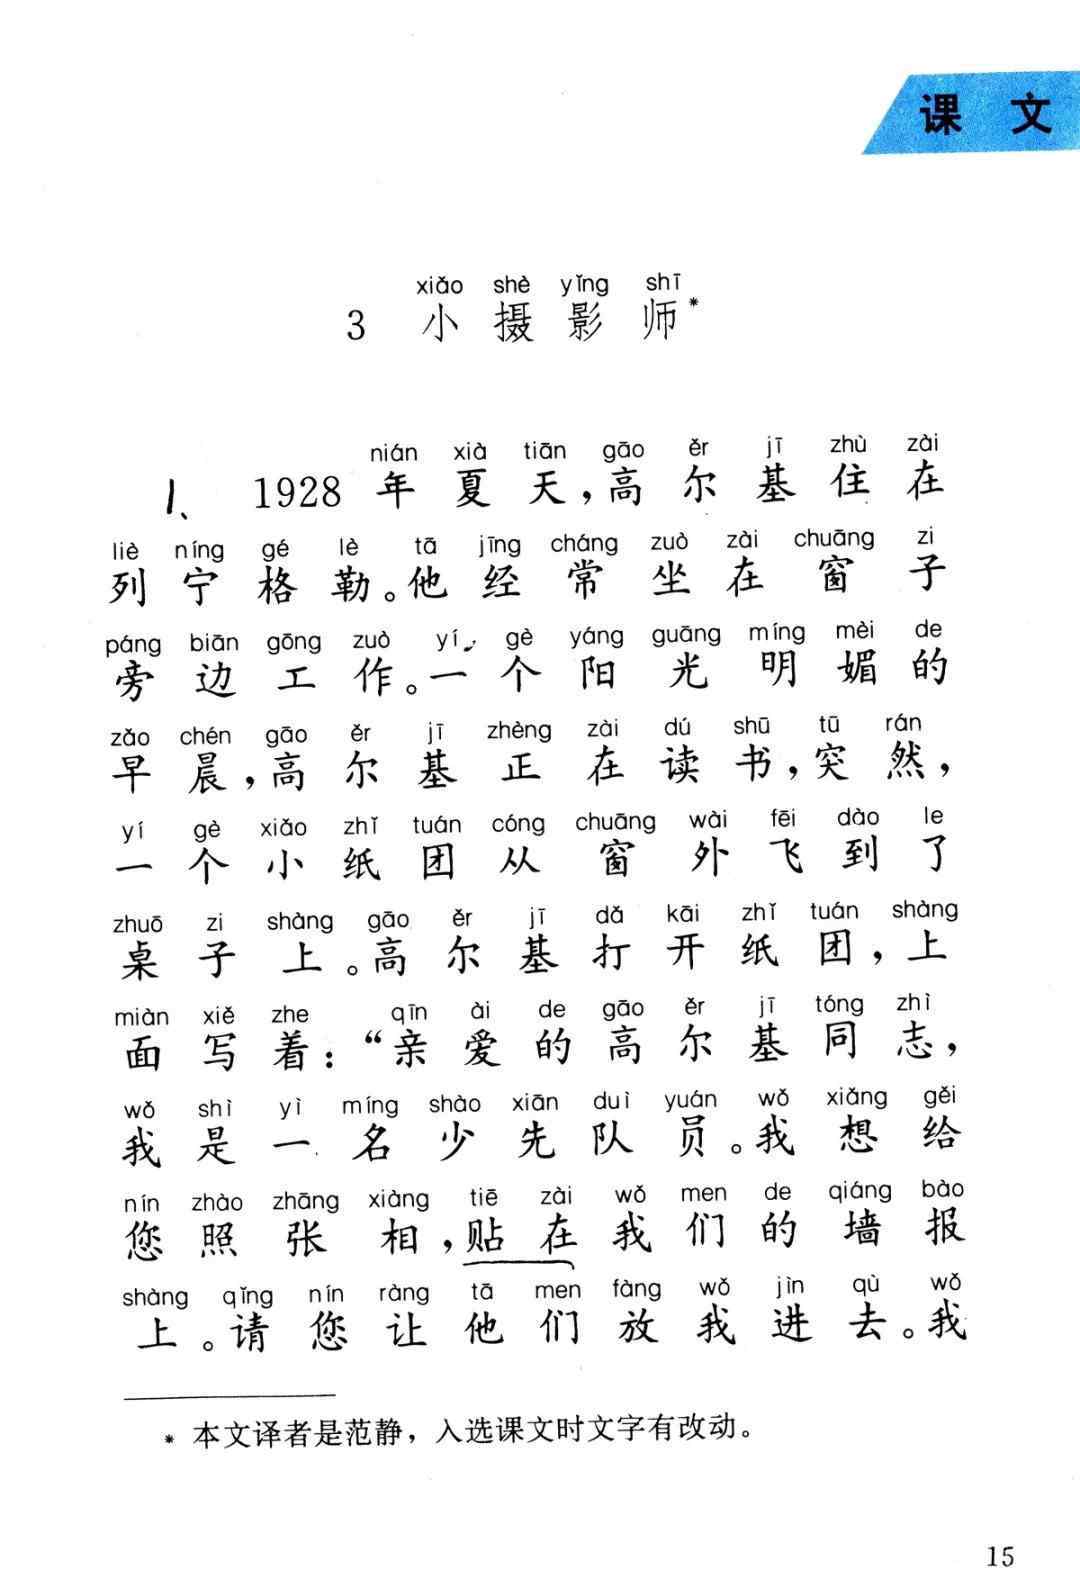 课 文
xiǎo shè yǐng shī
3 小摄影师*
nián xià tiān gāo ěr jī zhù zài
1、 1928年夏天，高尔基住在
liè níng gé lè tā jīng cháng zuò zài chuāng zi
列宁格勒。他经常坐在窗子
páng biān gōng zuò yí gè yáng guāng míng mèi de
旁边工作。一个阳光明媚的
zǎo chén gāo ěr jī zhèng zài dú shū tū rán
早晨，高尔基正在读书，突然，
yí gè xiǎo zhǐ tuán cóng chuāng wài fēi dào le
一个小纸团从窗外飞到了
zhuō zi shàng gāo ěr jī dǎ kāi zhǐ tuán shàng
桌子上。高尔基打开纸团，上
miàn xiě zhe qīn ài de gāo ěr jī tóng zhì
面写着：“亲爱的高尔基同志，
wǒ shì yì míng shào xiān duì yuán wǒ xiǎng gěi
我是一名少先队员。我想给
nín zhào zhāng xiàng tiē zài wǒ men de qiáng bào
您照张相，贴在我们的墙报
shàng qǐng nín ràng tā men fàng wǒ jìn qù wǒ
上。请您让他们放我进去。我
* 本文译者是范静，入选课文时文字有改动。
15